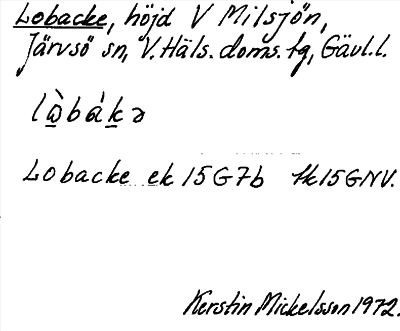 Lobacke, höjd V Milsjön,
Järvsö sn, V. Häls. doms. tg, Gävl.l.
lò̲bák̲ə
Lobacke ek 15G7b fk 15GNV.
Kerstin Mickelsson 1972.